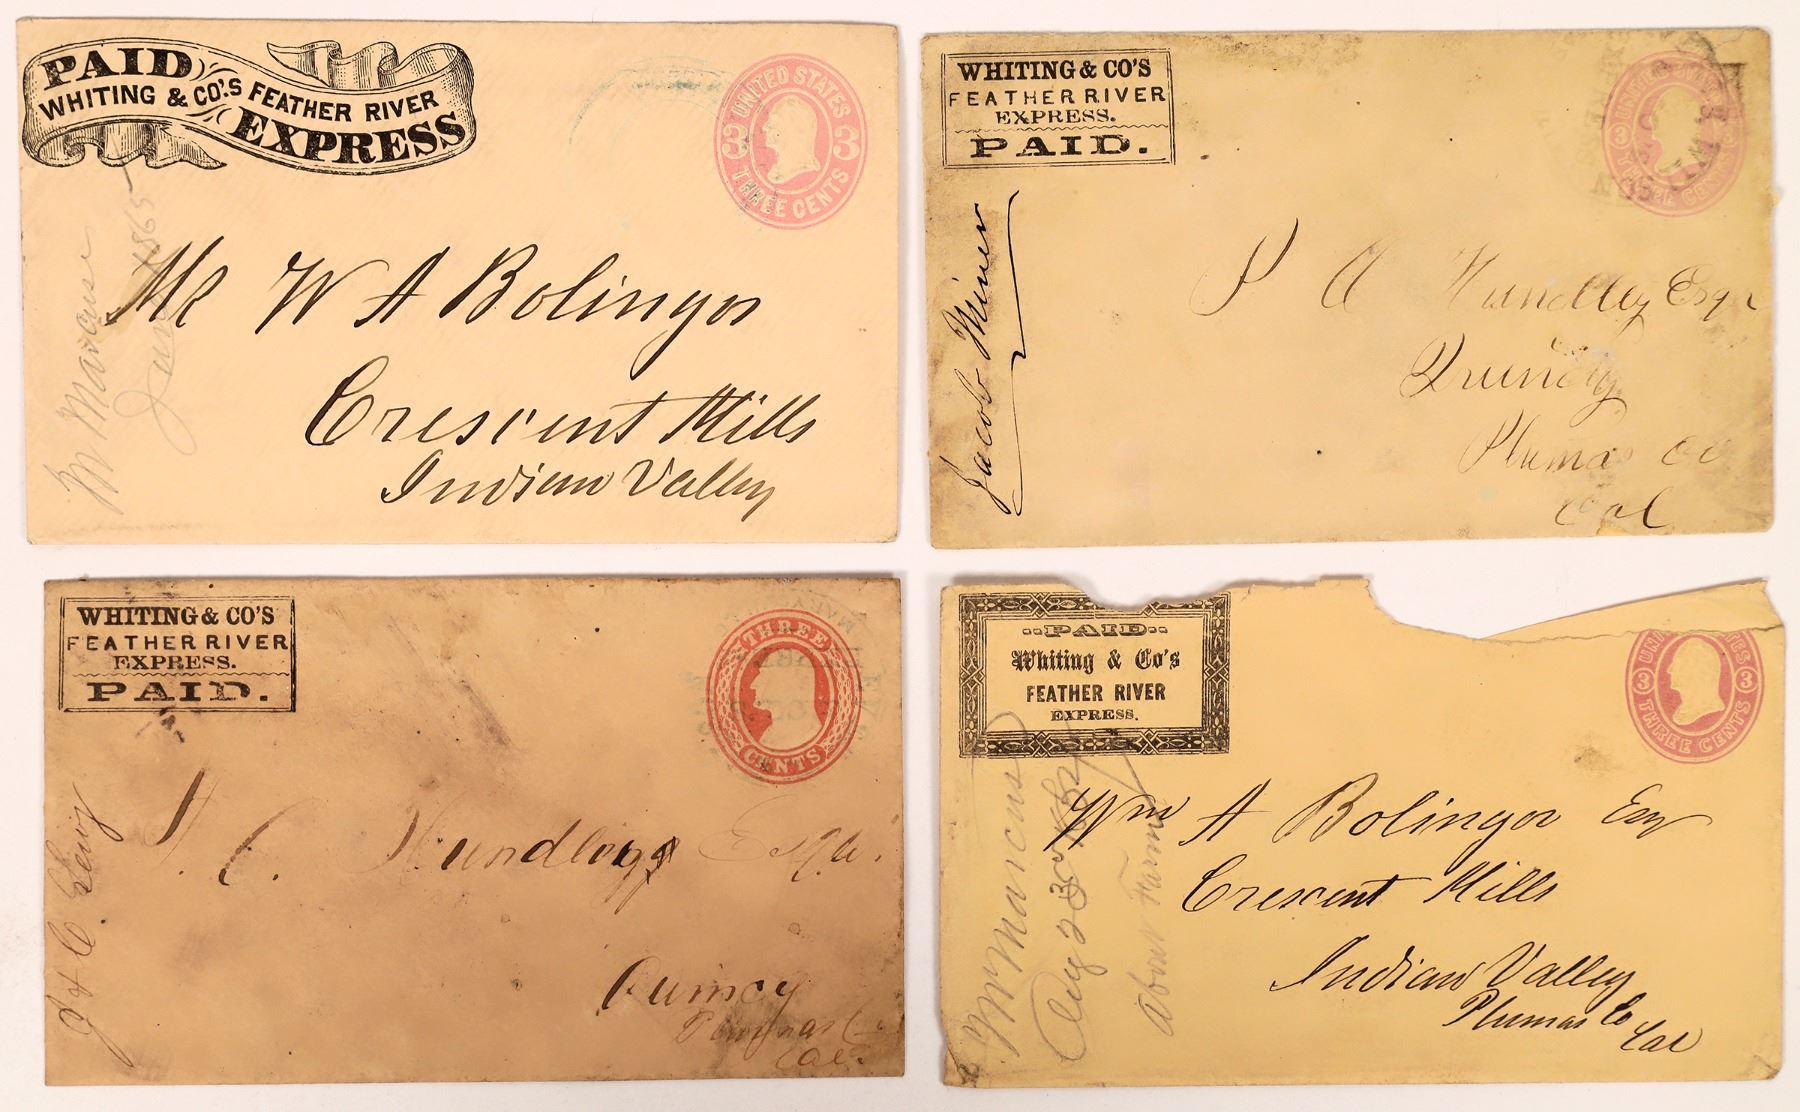 PAID
WHITING & CO'.S FEATHER RIVER
EXPRESS
UNITED STATES
3 3
THREE CENTS
Mr W A Bolinger
Crescent Mills
Indian Valley
W Marcuse
June 1865
WHITING & CO'S
FEATHER RIVER
EXPRESS.
PAID.
UNITED STATES
3 3
THREE CENTS
Jacob Miner
P A Hundley Esqr
Quincy
Plumas Co
Cal
WHITING & CO'S
FEATHER RIVER
EXPRESS.
PAID.
THREE
CENTS
J & C. Levy
Hundley Esqr.
Quincy
Plumas Co
Cal.
PAID
Whiting & Co's
FEATHER RIVER
EXPRESS.
UNITED STATES
3 3
THREE CENTS
Wm A Bolinger Esq
Crescent Mills
Indian Valley
Plumas Co
Cal
W Marcuse
About Farm